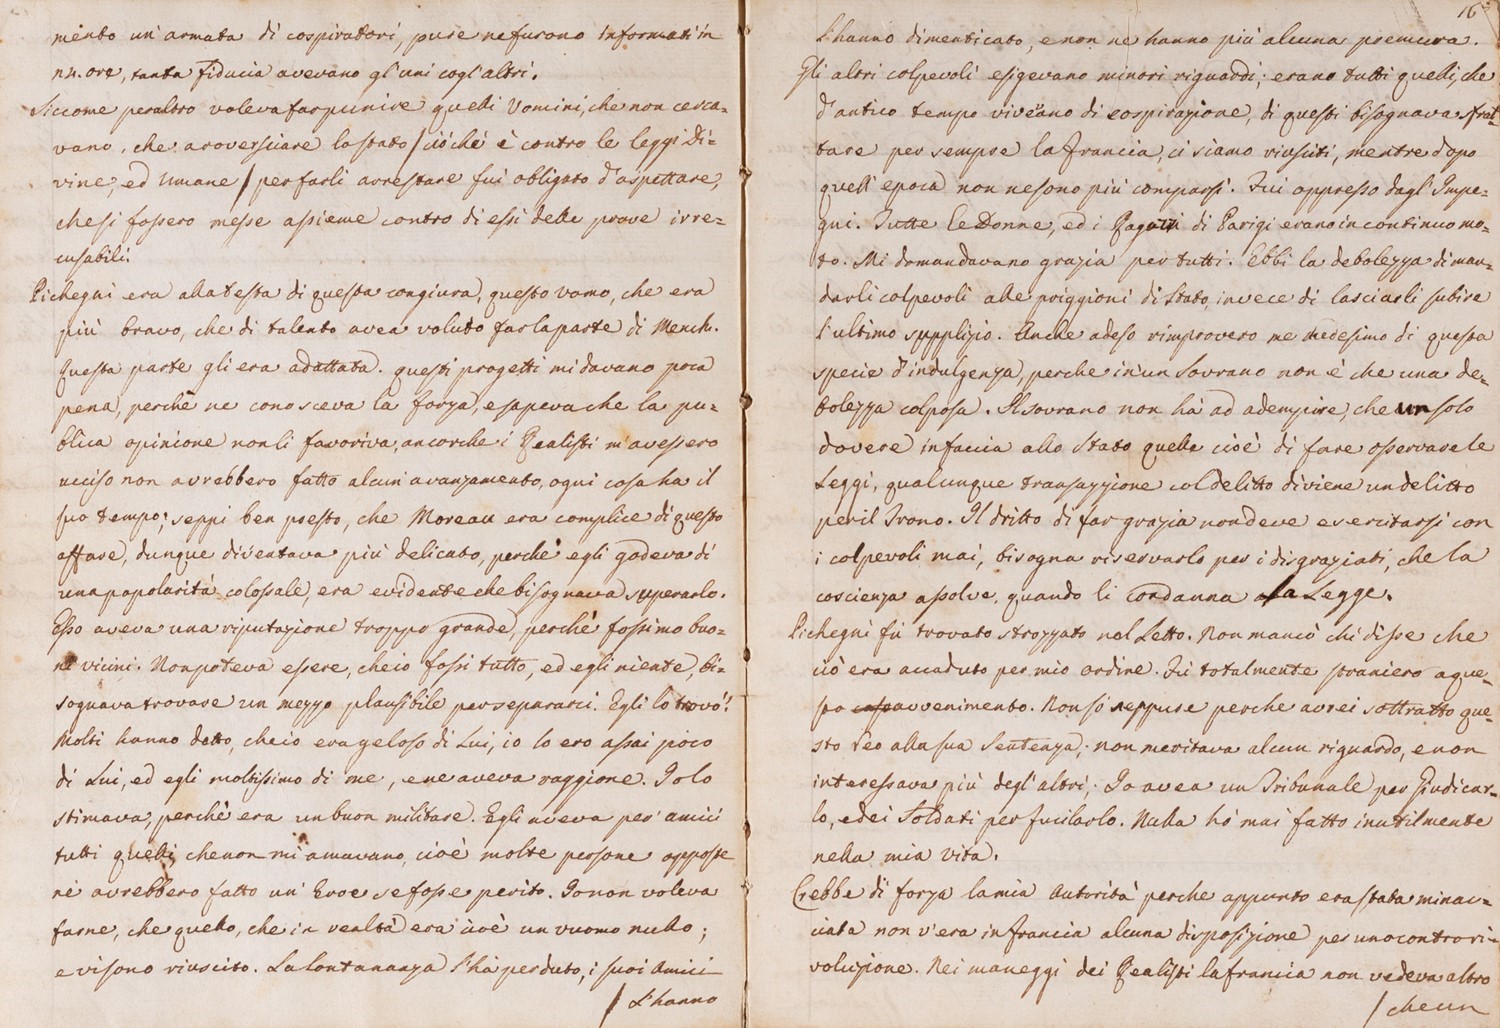 mento un'armata di cospiratori, pure ne furono informati in
nn. ore, tanta fiducia avevano gl'uni cogl'altri.
Siccome peraltro voleva far punire quelli Uomini, che non cerca-
vano, che aroversciare lo stato / ciò chè è contro le leggi Di-
vine, ed Umane / per farli arrestare fui obligato d'aspettare,
che si fossero messe assieme contro di essi delle prove irre-
cusabili.
Pichegni era alla testa di questa congiura, questo uomo, che era
più bravo, che di talento avea voluto far la parte di Monck.
questa parte gli era adattata. questi progetti mi davano poca
pena, perchè ne conosceva la forza, e sapeva che la pu-
blica opinione non li favoriva, ancorche i Realisti m'avessero
ucciso non avrebbero fatto alcun avanzamento, ogni cosa ha il
suo tempo; seppi ben presto, che Moreau era complice di questo
affare, dunque diventava più delicato, perchè egli godeva di
una popolarità colossale, era evidente che bisognava superarlo.
Esso aveva una riputazione troppo grande, perchè fossimo buo-
ni vicini. Non poteva essere, che io fossi tutto, ed egli niente, bi-
sognava trovare un mezzo plausibile per separarci. Egli lo trovò!
Molti hanno detto, che io era geloso di Lui, io lo ero assai poco
di Lui, ed egli moltissimo di me, e ne aveva raggione. Io lo
stimava, perchè era un buon militare. Egli aveva per amici
tutti quelli, che non mi amavano, cioè molte persone opposte
nè avrebbero fatto un' Eroe se fosse perito. Io non voleva
farne, che quello, che in realtà era cioè un vuomo nullo;
e vi sono riuscito. La lontananza l'ha perduto, i suoi Amici
/ L'hanno
16
l'hanno dimenticato, e non ne hanno più alcuna premura.
Gli altri colpevoli esigevano minori riguardi; erano tutti quelli, che
d'antico tempo vivéano di cospirazione, di questi bisognava sfrat-
tare per sempre la francia, ci siamo riusciti, mentre dopo
quell'epoca non ne sono più comparsi. Fui oppresso dagl'Impe-
gni. Tutte le Donne, ed i Ragazzi di Parigi erano in continuo mo-
to. Mi domandavano grazia per tutti. Ebbi la debolezza di man-
darli colpevoli alle priggioni di Stato, invece di lasciarli subire
l'ultimo suppplizio. Anche adeso rimprovero me medesimo di questa
specie d'indulgenza, perche in'un Sovrano non è che una de-
bolezza colposa. Il sovrano non hà ad adempire, che un solo
dovere in faccia allo Stato quello cioè di fare osservare le
Leggi, qualunque transazzione col delitto diviene un delitto
per il Trono. Il dritto di far grazia non deve esercitarsi con
i colpevoli mai, bisogna riservarlo per i disgraziati, che la
coscienza assolve, quando li condanna la Legge.
Pichegni fù trovato strozzato nel Letto. Non mancò chi disse che
ciò era accaduto per mio ordine. Fui totalmente straniero a que-
sto avvenimento. Non sò neppure perche avrei sottratto que-
sto reo alla sua Sentenza; non meritava alcun riguardo, e non
interessava più degl'altri; Io avea un Tribunale per Giudicar-
lo, e dei Soldati per fucilarlo. Nulla hò mai fatto inutilmente
nella mia vita.
Crebbe di forza la mia Autorità perche appunto era stata minac-
ciata non v'era in francia alcuna disposizione per una contro ri-
voluzione. Nei maneggi dei Realisti la francia non vedeva altro
/ che un